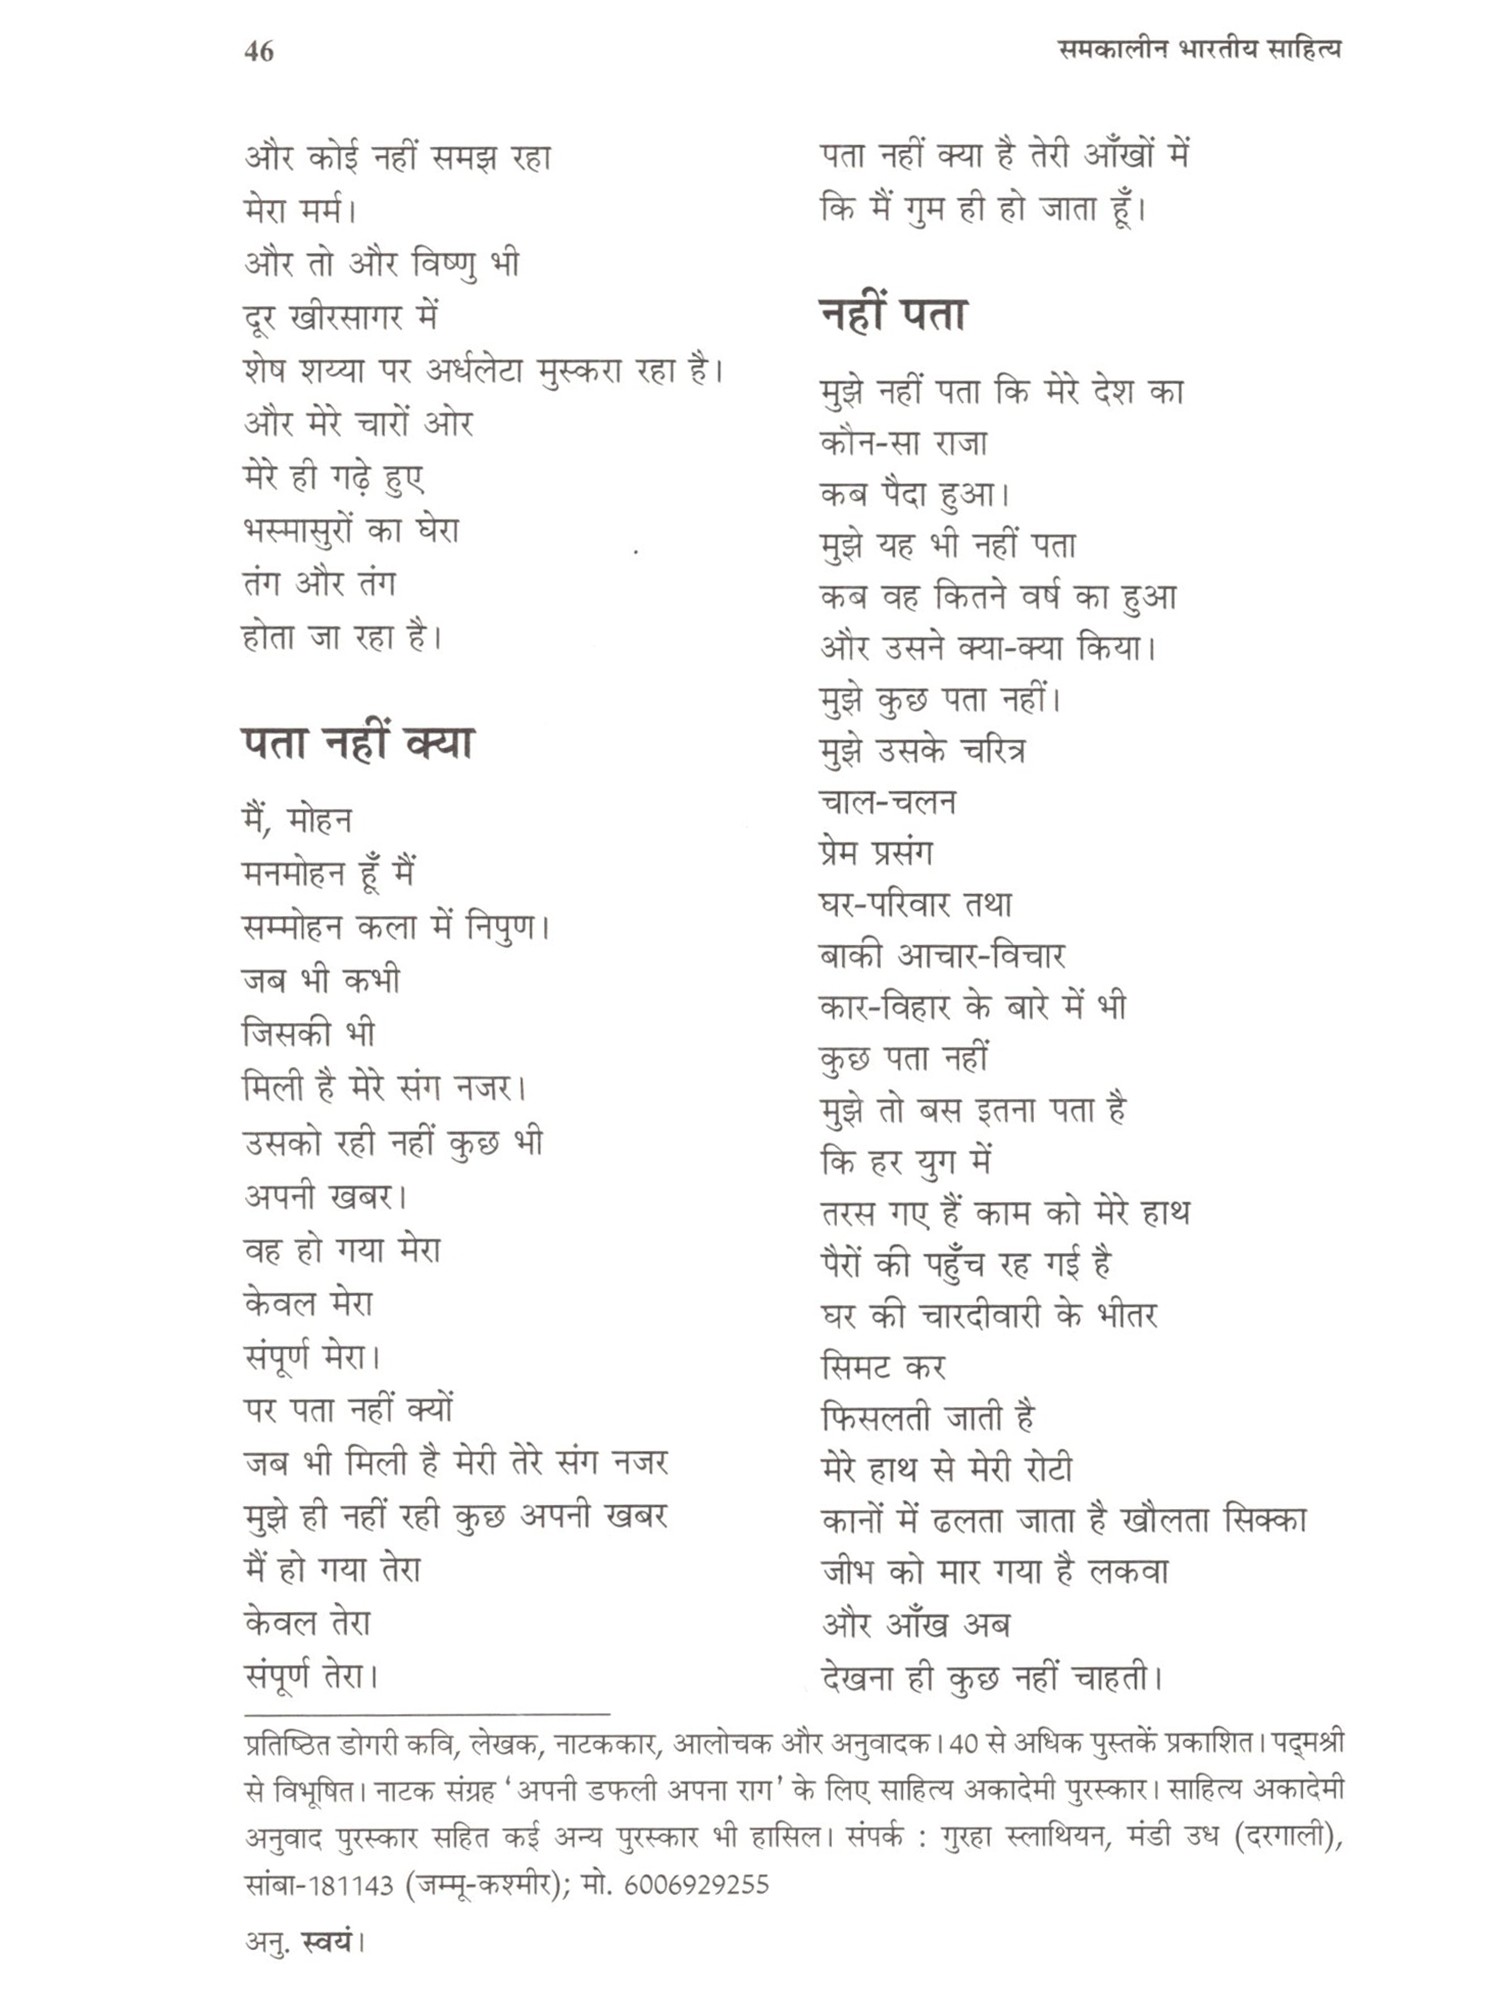 46
समकालीन भारतीय साहित्य
और कोई नहीं समझ रहा
मेरा मर्म।
और तो और विष्णु भी
दूर खीरसागर में
शेष शय्या पर अर्धलेटा मुस्करा रहा है।
और मेरे चारों ओर
मेरे ही गढ़े हुए
भस्मासुरों का घेरा
तंग और तंग
होता जा रहा है।
पता नहीं क्या
मैं, मोहन
मनमोहन हूँ मैं
सम्मोहन कला में निपुण।
जब भी कभी
जिसकी भी
मिली है मेरे संग नजर।
उसको रही नहीं कुछ भी
अपनी खबर।
वह हो गया मेरा
केवल मेरा
संपूर्ण मेरा।
पर पता नहीं क्यों
जब भी मिली है मेरी तेरे संग नजर
मुझे ही नहीं रही कुछ अपनी खबर
मैं हो गया तेरा
केवल तेरा
संपूर्ण तेरा।
पता नहीं क्या है तेरी आँखों में
कि मैं गुम ही हो जाता हूँ।
नहीं पता
मुझे नहीं पता कि मेरे देश का
कौन-सा राजा
कब पैदा हुआ।
मुझे यह भी नहीं पता
कब वह कितने वर्ष का हुआ
और उसने क्या-क्या किया।
मुझे कुछ पता नहीं।
मुझे उसके चरित्र
चाल-चलन
प्रेम प्रसंग
घर-परिवार तथा
बाकी आचार-विचार
कार-विहार के बारे में भी
कुछ पता नहीं
मुझे तो बस इतना पता है
कि हर युग में
तरस गए हैं काम को मेरे हाथ
पैरों की पहुँच रह गई है
घर की चारदीवारी के भीतर
सिमट कर
फिसलती जाती है
मेरे हाथ से मेरी रोटी
कानों में ढलता जाता है खौलता सिक्का
जीभ को मार गया है लकवा
और आँख अब
देखना ही कुछ नहीं चाहती।
प्रतिष्ठित डोगरी कवि, लेखक, नाटककार, आलोचक और अनुवादक। 40 से अधिक पुस्तकें प्रकाशित। पद्‌मश्री
से विभूषित। नाटक संग्रह ‘अपनी डफली अपना राग’ के लिए साहित्य अकादेमी पुरस्कार। साहित्य अकादेमी
अनुवाद पुरस्कार सहित कई अन्य पुरस्कार भी हासिल। संपर्क : गुरहा स्लाथियन, मंडी उध (दरगाली),
सांबा-181143 (जम्मू-कश्मीर); मो. 6006929255
अनु. स्वयं।